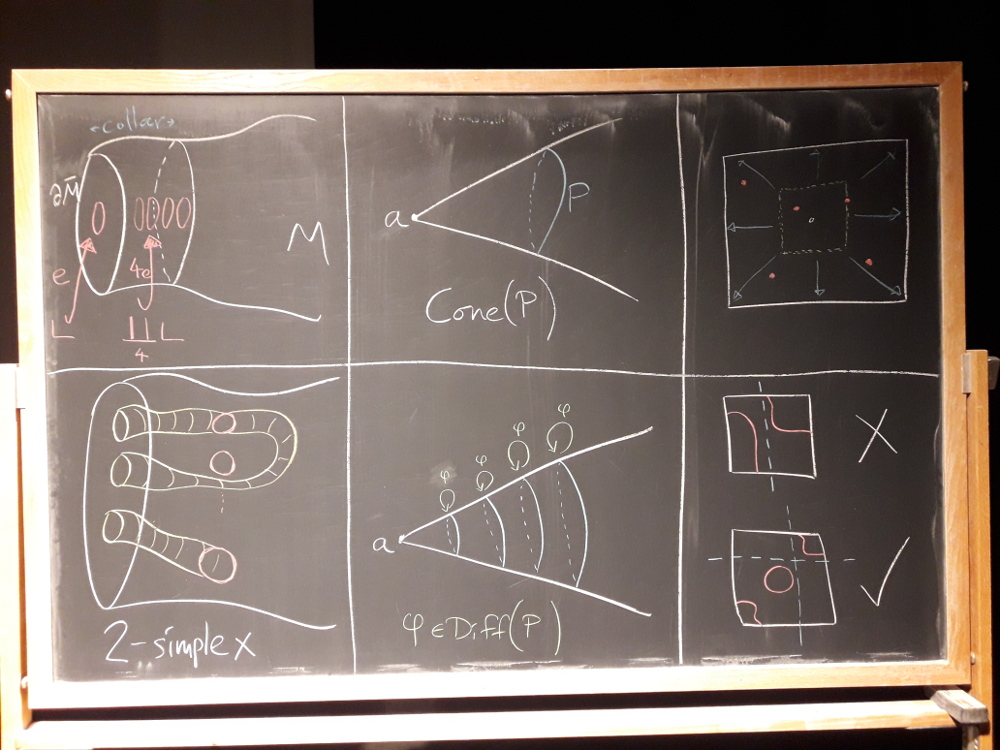 ←collar→
∂M̄
M
e
4e
L
∐ L
4
a
P
Cone(P)
2-simplex
φ φ φ φ
a
φ∈Diff(P)
X
✓